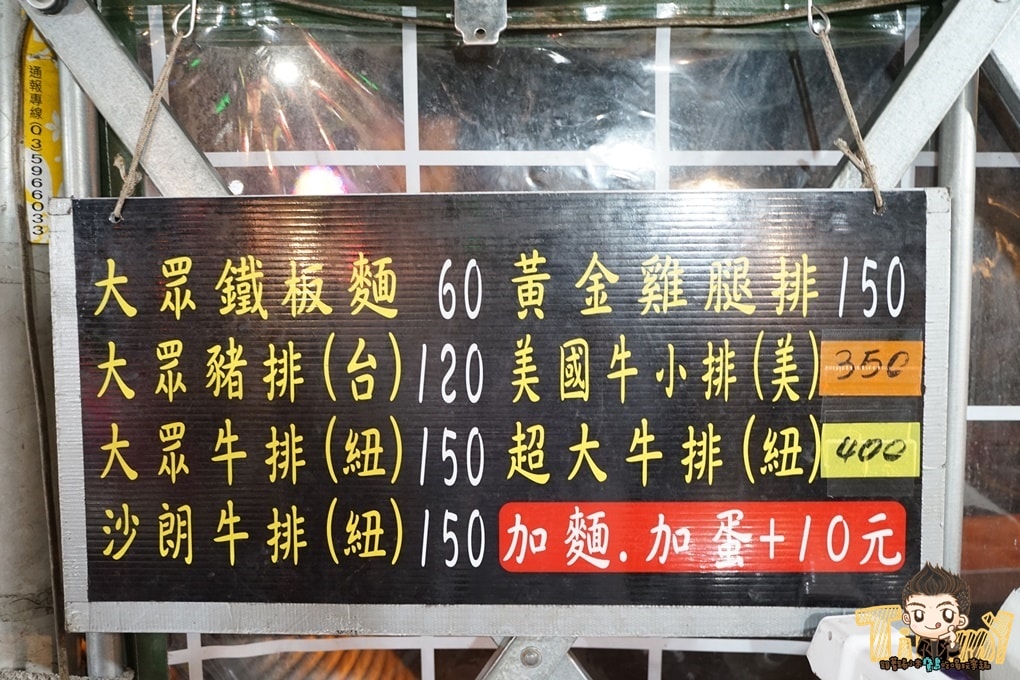 通報專線(03)5966033
大眾鐵板麵 60
大眾豬排(台) 120
大眾牛排(紐) 150
沙朗牛排(紐) 150
黃金雞腿排 150
美國牛小排(美) 350
超大牛排(紐) 400
加麵.加蛋+10元